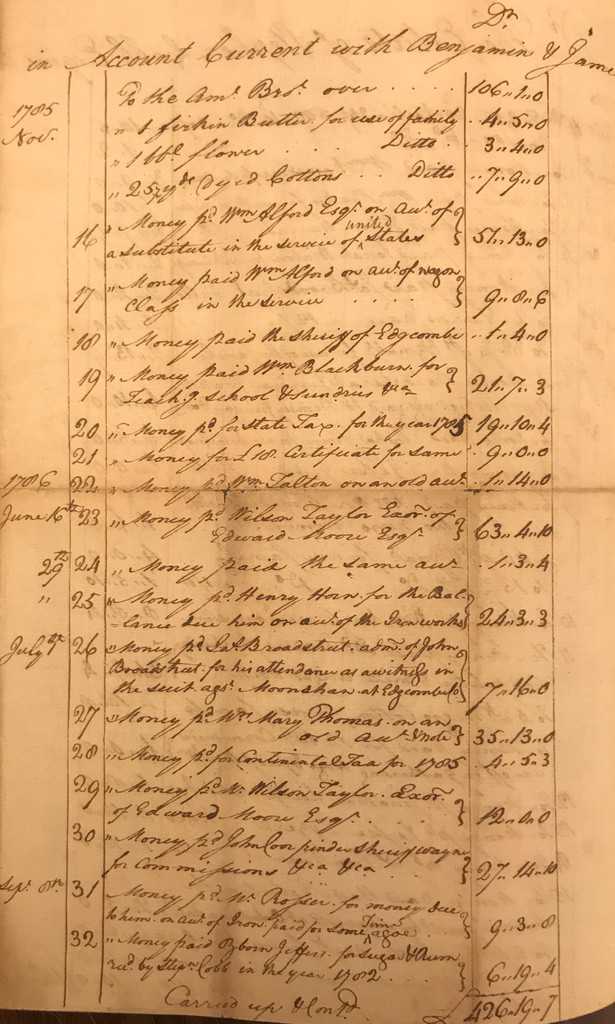 Dr
in Account Current with Benjamin & Jame
To the Amt. Brot. over .... 106„1„0
1785
Nov. „ 1 firkin Butter for use of family . 4„5„0
„ 1 bbl flower .... Ditto . 3„4„0
„ 25 yds Dyed Cottons .. Ditto „7„9„0
16 „ Money pd. Wm Alford Esqr. on acct. of
a substitute in the service of united States } 51„13„0
17 „ Money paid Wm Alford on acct. of wagon
Class in the service .... } 9„8„6
18 „ Money paid the sheriff of Edgcombe „1„4„0
19 „ Money paid Wm Blackburn for
Teachg. school & sundries &ca } 21„7„3
20 „ Money pd. for State Tax for the year 1785 19„10„4
21 „ Money for £18. Certificate for same . 9„0„0
1786 22 „ Money pd. Wm. Talton on an old acct. . 1„14„0
June 16th 23 „ Money pd. Wilson Taylor Exor. of
Edward Moore Esqr. } 63„4„10
29th 24 „ Money paid the same acct . 1„3„4
„ 25 „ Money pd. Henry Horn for the Bal-
-lance due him on acct. of the Iron works } 24„3„3
July 26 „ Money pd. Jas. Broadstreet. admr. of John
Broadstreet for his attendance as a witness in
the suit agst. Moonshan at Edgcombe Co } 7„16„0
27 „ Money pd. Mrs. Mary Thomas on an
old acct. & note } 35„13„0
28 „ Money pd. for Continental Tax for 1785 . 4„5„3
29 „ Money pd. Mr. Wilson Taylor. Exor.
of Edward Moore Esqr. . . . } 12„0„0
30 „ Money pd. John Coor pinder sheriff wayne
for Commissions &ca &ca . . . } 27„14„10
Sepr. 8th 31 Money pd. Mr. Rosser. for money due
to him on acct. of Iron. paid for some Time agoe } 9„3„8
32 „ Money paid Osborn Jeffers. for sugar & Rum
recd. by Stepn. Cobb in the year 1782 . . . } 6„19„4
Carried up & Contd. £ 426„19„7